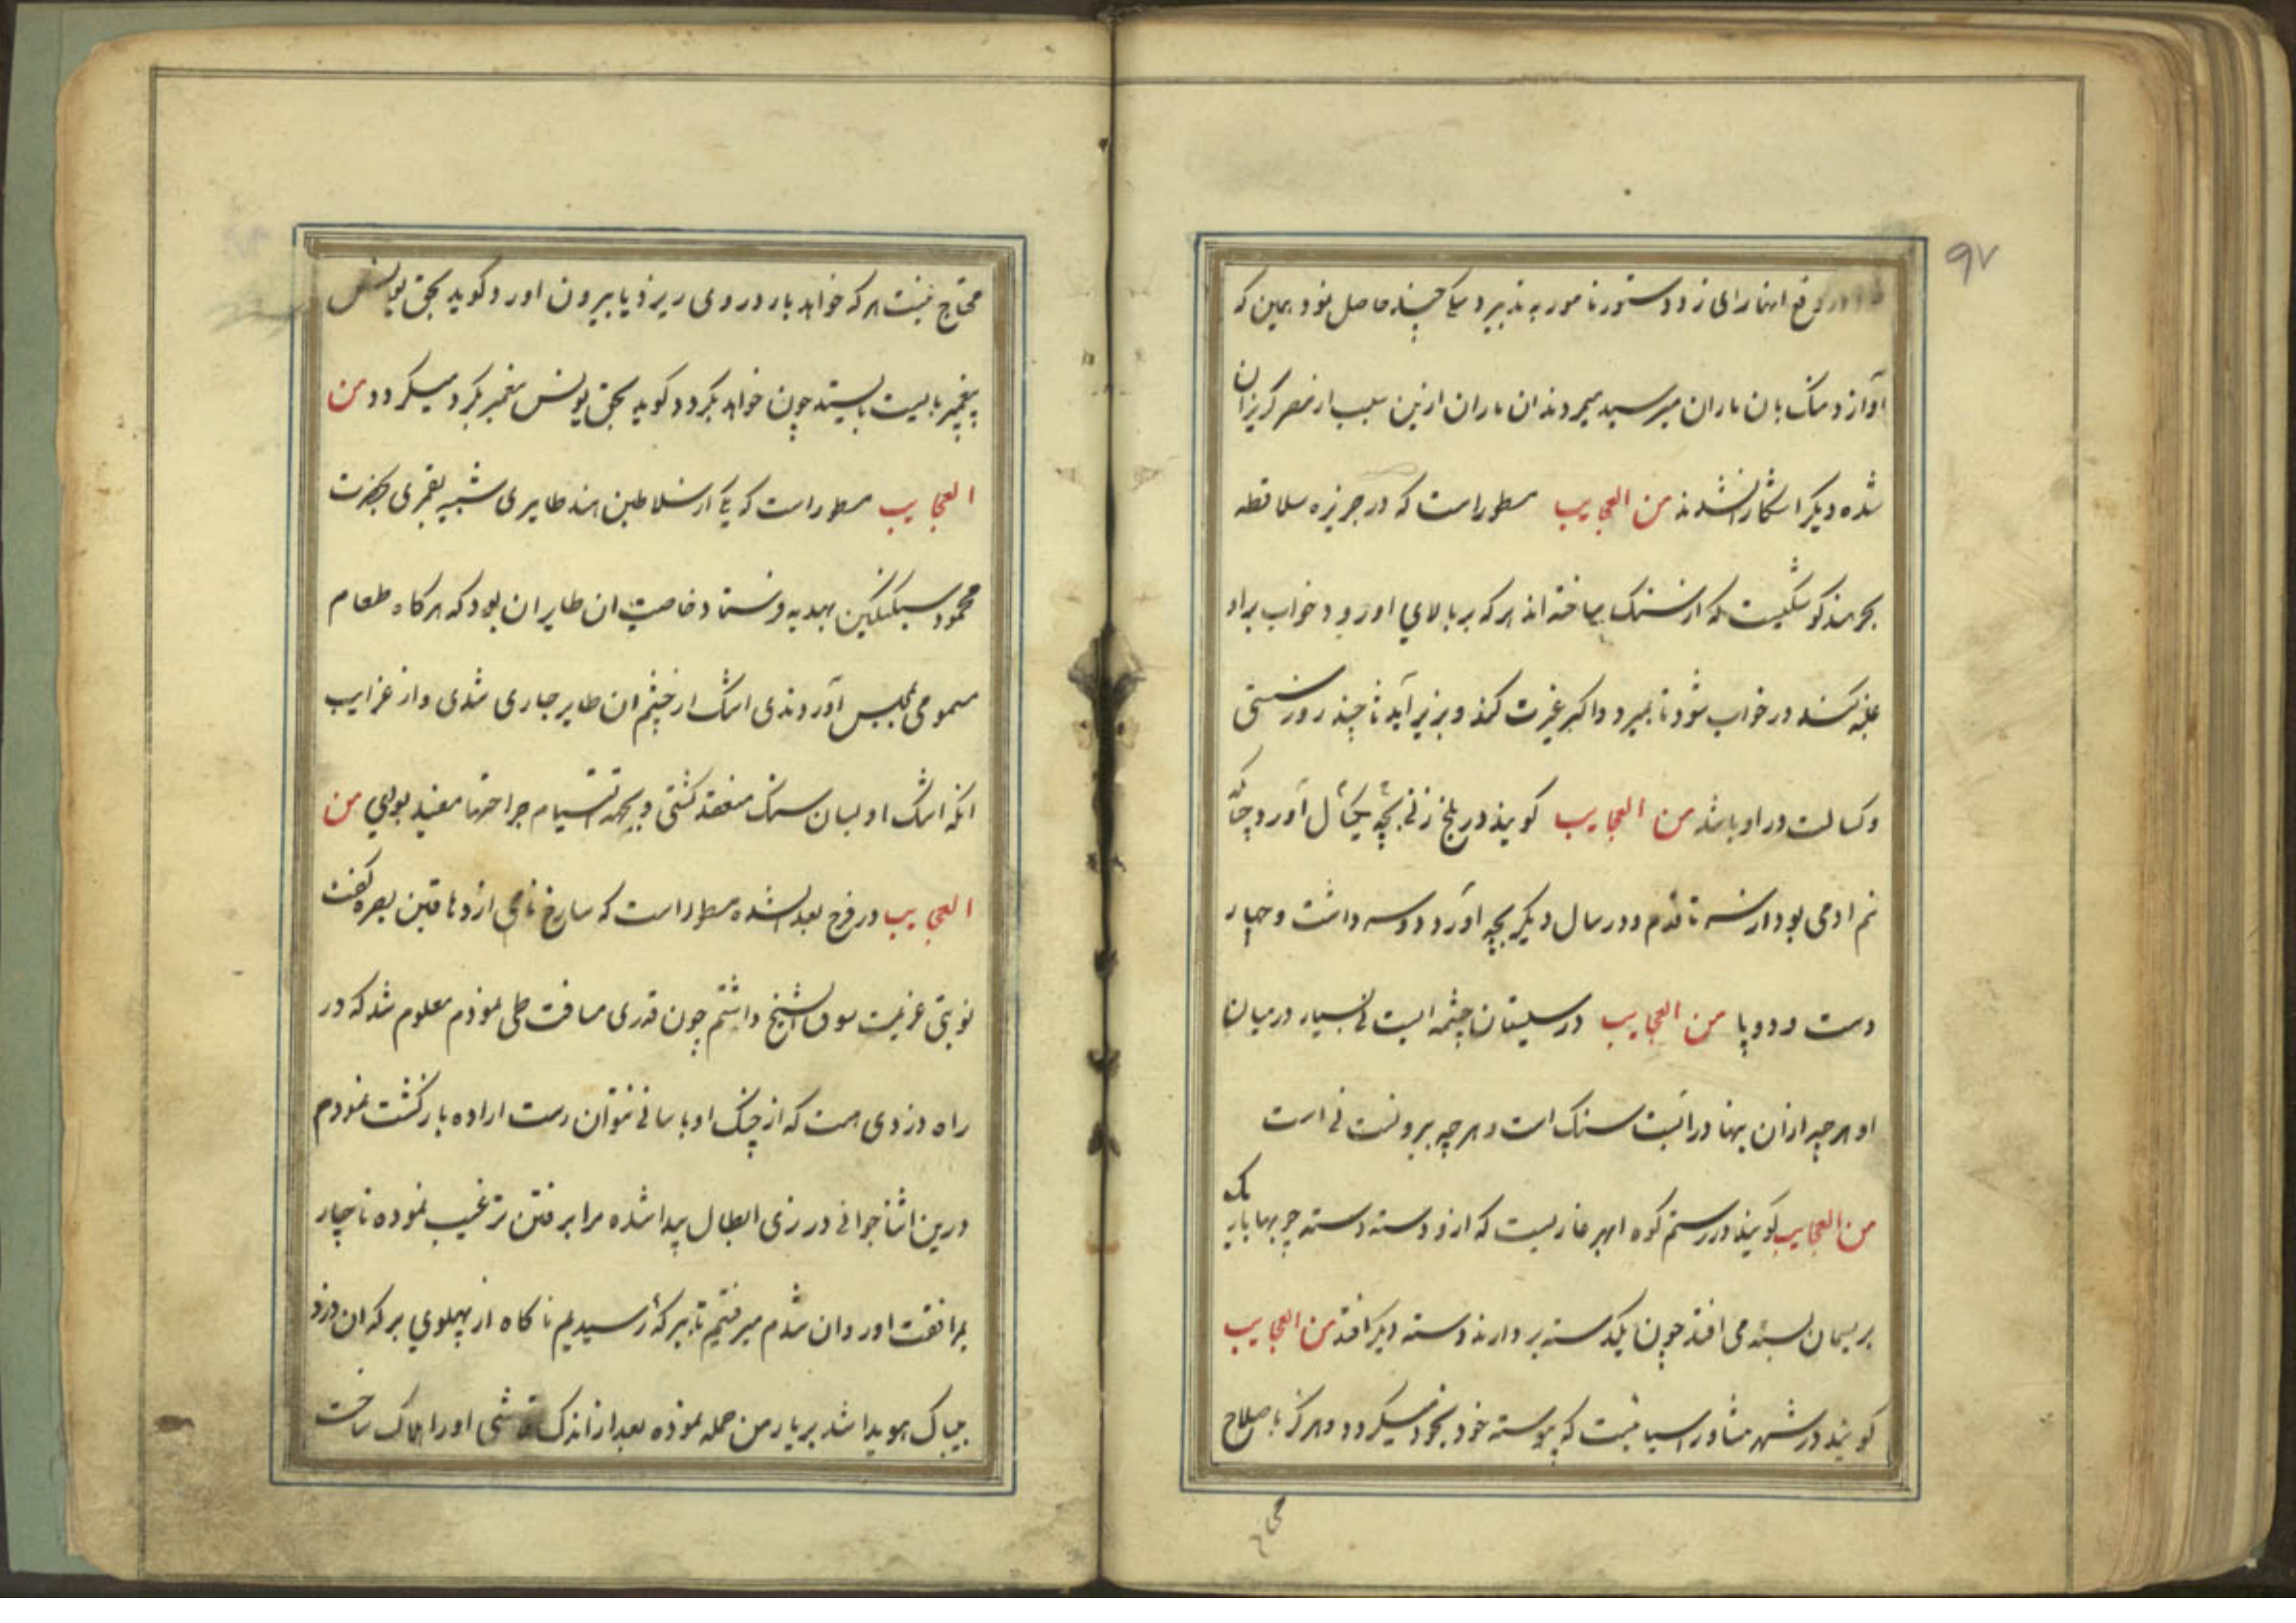 ۹۷
دفع انها رای زد و دستور نامور به تدبیر و نیکی چند حاصل نمود همین که
آواز و سنک بان ماران میرسید میمردند ان ماران ازین سبب از مصر کریزان
شده دیکر اشکار نشدند من العجایب مسطور است که در جزیره سلاقطه
بحر هند کوشکیست که از سنک ساخته اند هر که بر بالای او رود خواب بر او
غلبه کند در خواب شود تا بمیرد و اکر غیرت کند و بزیر آید تا چند روز سستی
و کسالت در او باشد من العجایب کویند در بلخ زنی بچه بیک سال آورد چنانکه
نیم ادمی بود از سر تا قدم و در سال دیکر بچه آورد دو سر داشت و چهار
دست و دو پا من العجایب در سیستان چشمه ایست نی بسیار در میان
او هر چه ازان پنهان در آبست سنک است و هر چه بیرونست نی است
من العجایب کویند در رستم کوه ابهر غاریست که ازو دسته دسته چوبها باریک
بریسمان بسته می افتد چون یکدسته بردارند دسته دیکر افتد من العجایب
کویند در شهر نشاور اسیابیست که پیوسته خود بخود میکردد و هرکز باصلاح
محتاج
محتاج نیست هر که خواهد بار در وی ریزد یا بیرون اورد کوید بحق یونس
پیغمبر بایست بایستد چون خواهد بکردد کوید بحق یونس پیغمبر بکرد میکردد من
العجایب مسطور است که یکی از سلاطین هند طایری شبیه بقمری بحضرت
محمود سبکتکین بهدیه فرستاد خاصیت ان طایر ان بود که هرکاه طعام
مسمومی بمجلس آوردندی اشک از چشم ان طایر جاری شدی و از غرایب
انکه اشک او بسان سنک منعقد کشتی و بجهه التیام جراحتها مفید بودی من
العجایب در فرج بعد الشده مسطور است که سارخ نامی از دهاقین بصره کفت
نوبتی عزیمت سوق الشیخ داشتم چون قدری مسافت طی نمودم معلوم شد که در
راه دزدی هست که از چنک او باسانی نتوان رست اراده بازکشت نمودم
درین اثنا جوانی در زی ابطال پیدا شده مرا برفتن ترغیب نموده ناچار
بمرافقت او روان شدم میرفتیم تا ببرکه رسیدیم ناکاه از پهلوی برکه ان دزد
بیباک هویدا شد بر یار من حمله نموده بعد از اندک او را هلاک ساخت